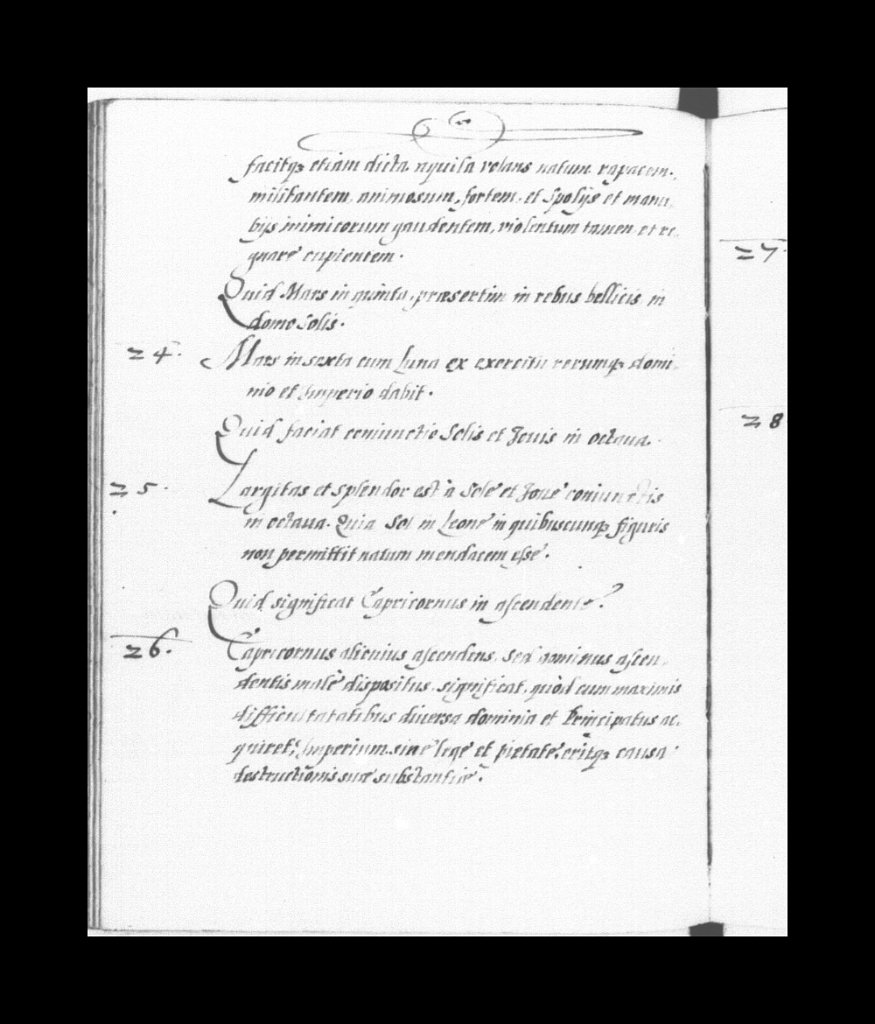 facitq; etiam dicta aquila volans natum rapacem,
militantem, animosum, fortem, et Spolijs et manu
bijs inimicorum gaudentem, violentum tamen et re,
gnare cupientem.
Quid Mars in quinta, præsertim in rebus bellicis in
domo Solis.
24. Mars in sexta cum Luna ex exercitu rerumq; domi,
nio et Imperio dabit.
Quid faciat coniunctio Solis et Jouis in octaua.
25. Largitas et splendor est à Sole et Joue coniunctis
in octaua. Quia Sol in Leone in quibuscunq; figuris
non permittit natum mendacem esse.
Quid significat Capricornus in ascendente?
26. Capricornus alicuius ascendens, sed dominus ascen,
dentis malè dispositus, significat, quòd cum maximis
difficultatatibus diuersa dominia et Principatus ac,
quiret, Imperium sine lege et pietate, eritq; causa
destructionis suæ substantiæ.
27.
28